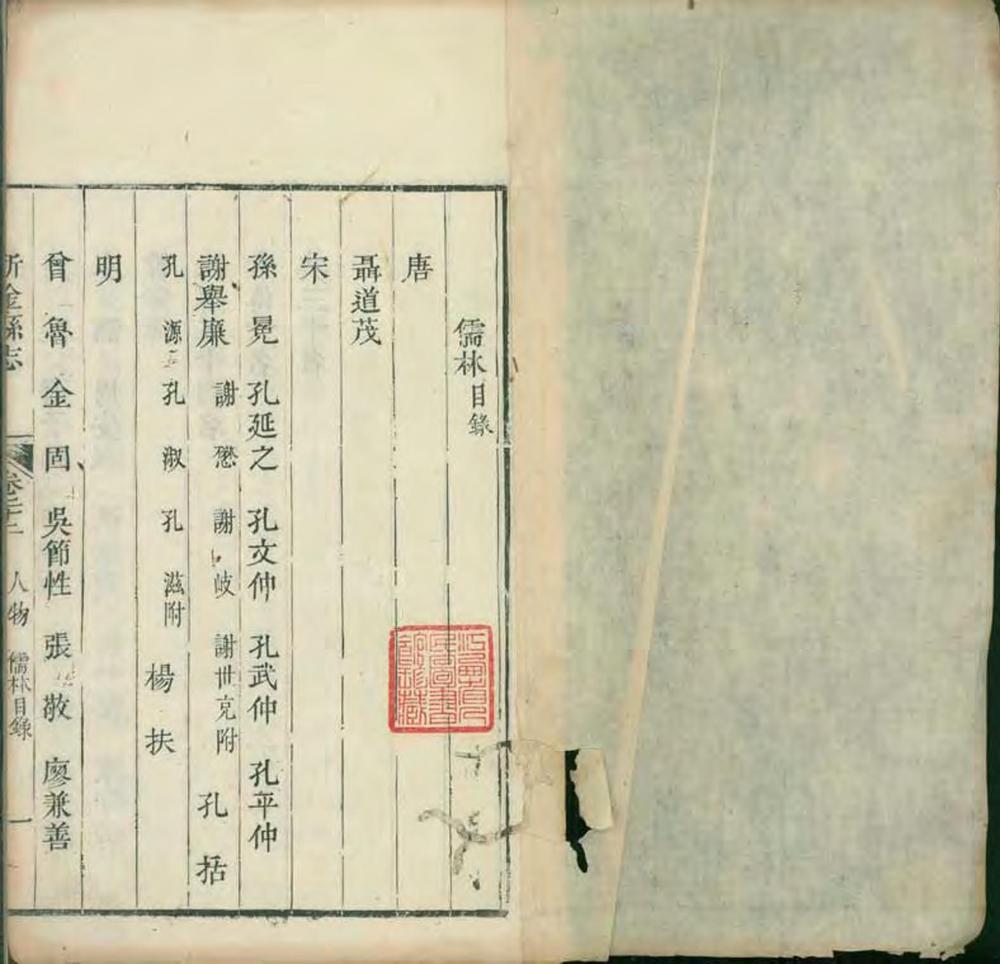 儒林目錄
唐
聶道茂
宋
孫冕 孔延之 孔文仲 孔武仲 孔平仲
謝舉廉 謝懋 謝岐 謝世充附 孔括
孔源 孔淑 孔滋附 楊扶
明
曾魯 金固 吳節性 張敬 廖兼善
新金縣志 卷二十二 人物 儒林目錄 一